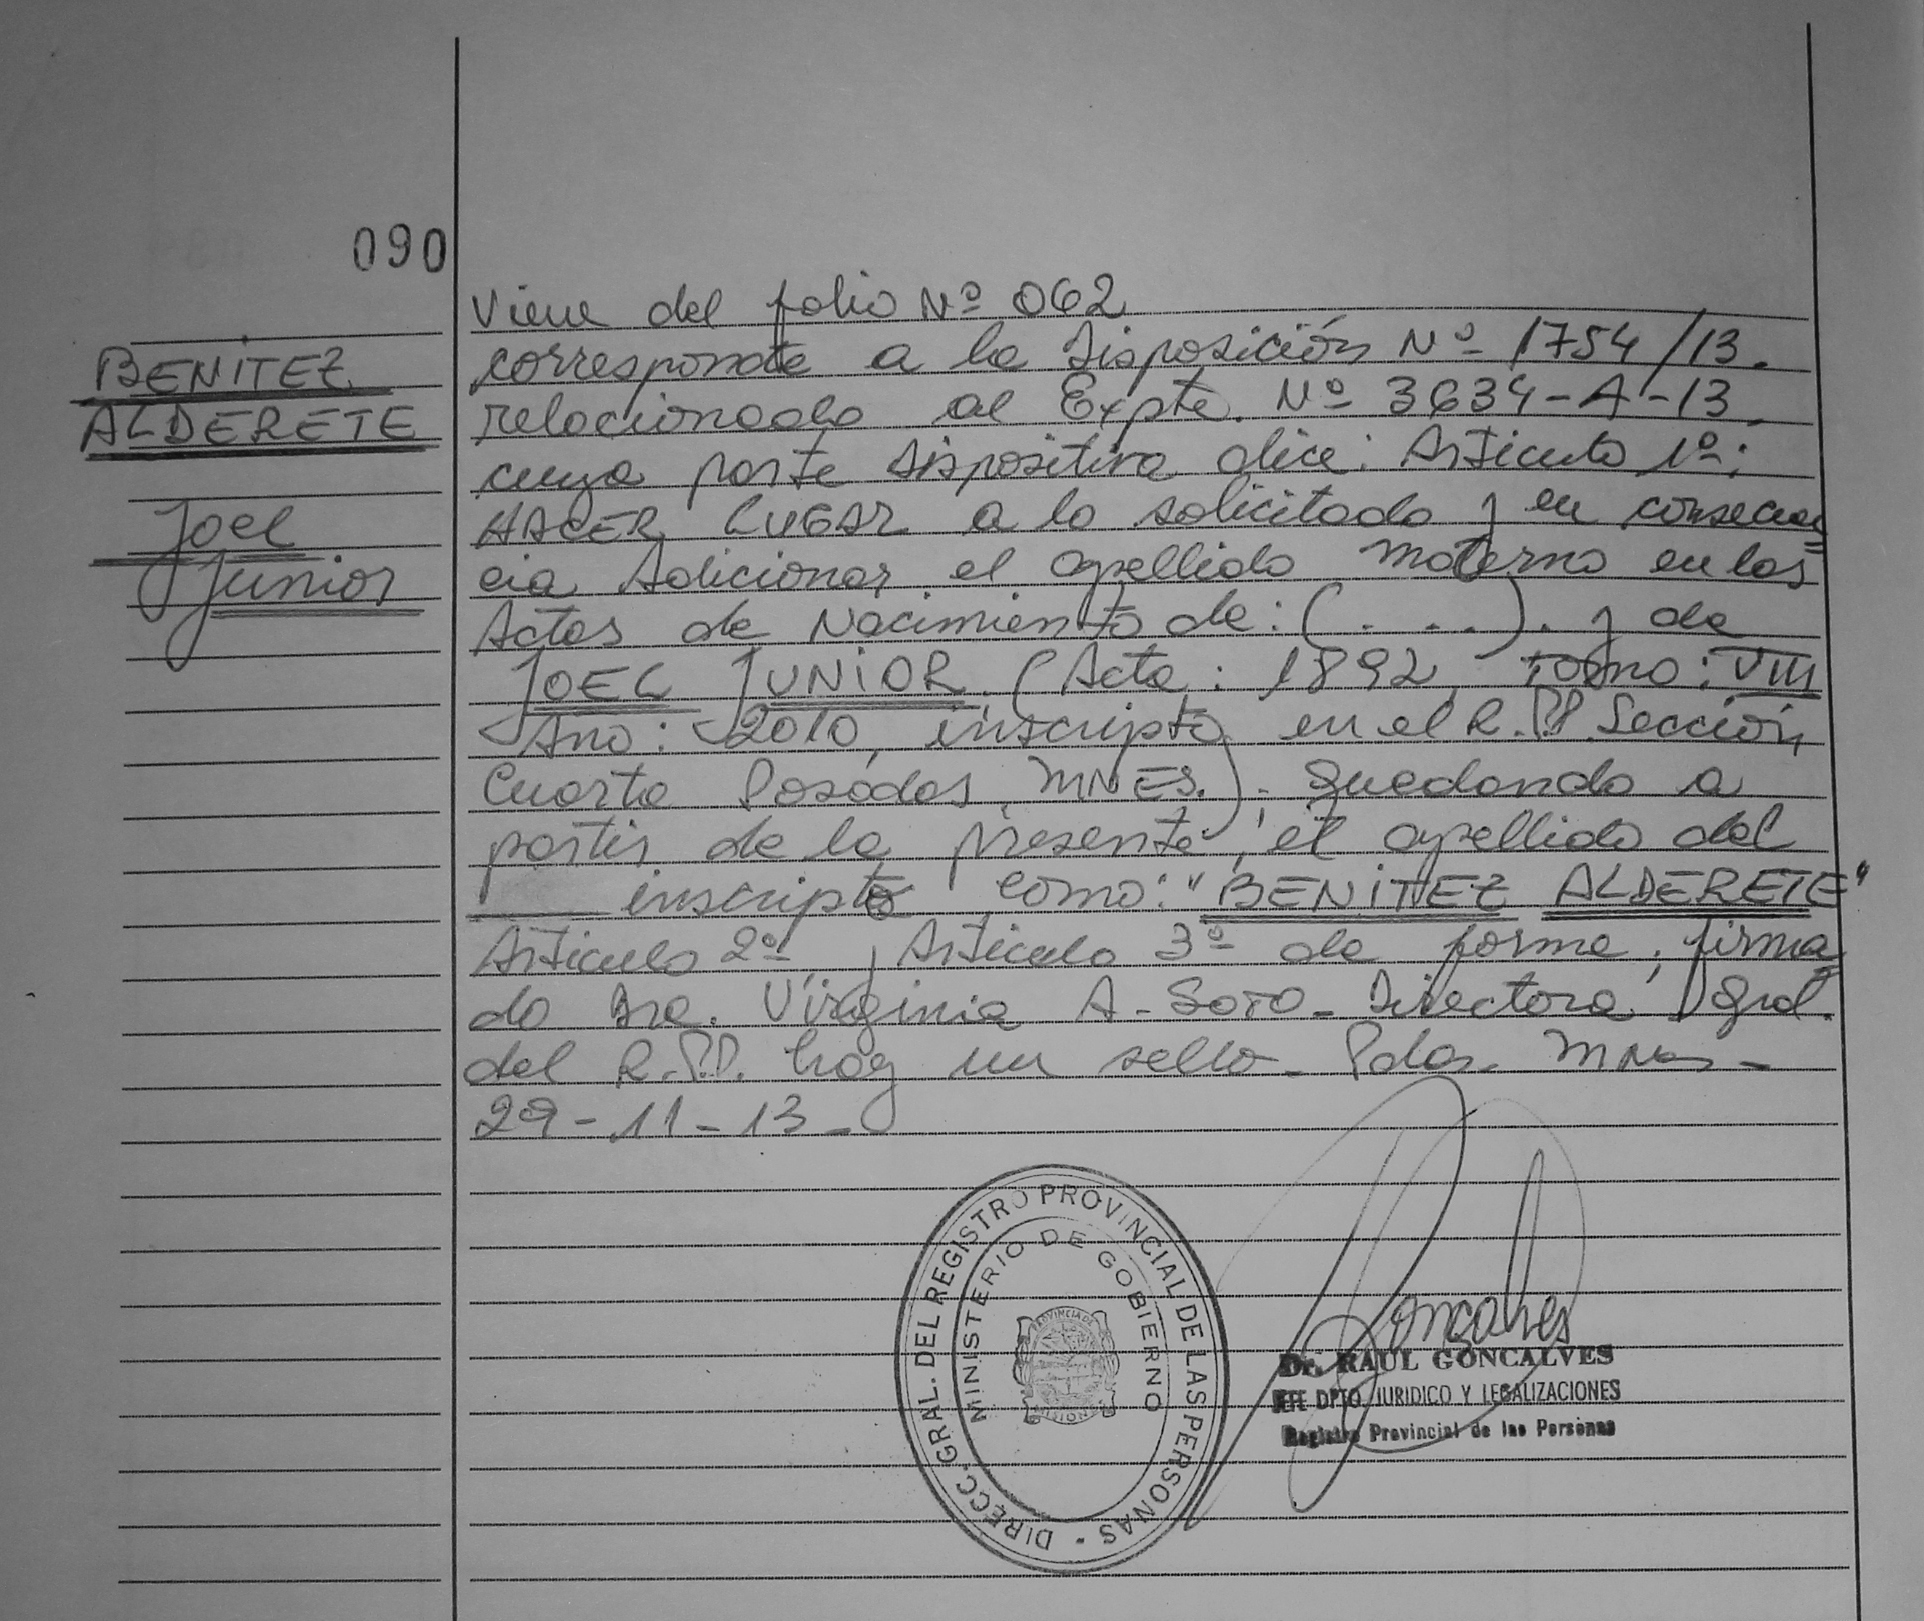 090
BENITEZ
ALDERETE
Joel
Junior
Viene del folio Nº 062
corresponde a la Disposición Nº 1754/13.
relacionado al Expte. Nº 3634-A-13
cuya parte dispositiva dice: Articulo 1º:
HACER LUGAR a lo solicitado y en consecuen
cia Adicionar el apellido materno en las
Actas de Nacimiento de: (. . .). y de
JOEL JUNIOR (Acta: 1892, Tomo: VIII
Año: 2010, inscripto en el R.P.P. Sección
Cuarta Posadas, MNES.); quedando a
partir de la presente, el apellido del
inscripto como: "BENITEZ ALDERETE"
Articulo 2º y Articulo 3º de forma; firma
do Dra. Virginia A. SOTO - Directora Gral.
del R.P.P. hay un sello - Pdas. MNes -
29-11-13-
DIRECC. GRAL. DEL REGISTRO PROVINCIAL DE LAS PERSONAS -
MINISTERIO DE GOBIERNO
PROVINCIA DE
MISIONES
Goncalves
Dr. RAUL GONCALVES
JEFE DPTO. JURIDICO Y LEGALIZACIONES
Registro Provincial de las Personas